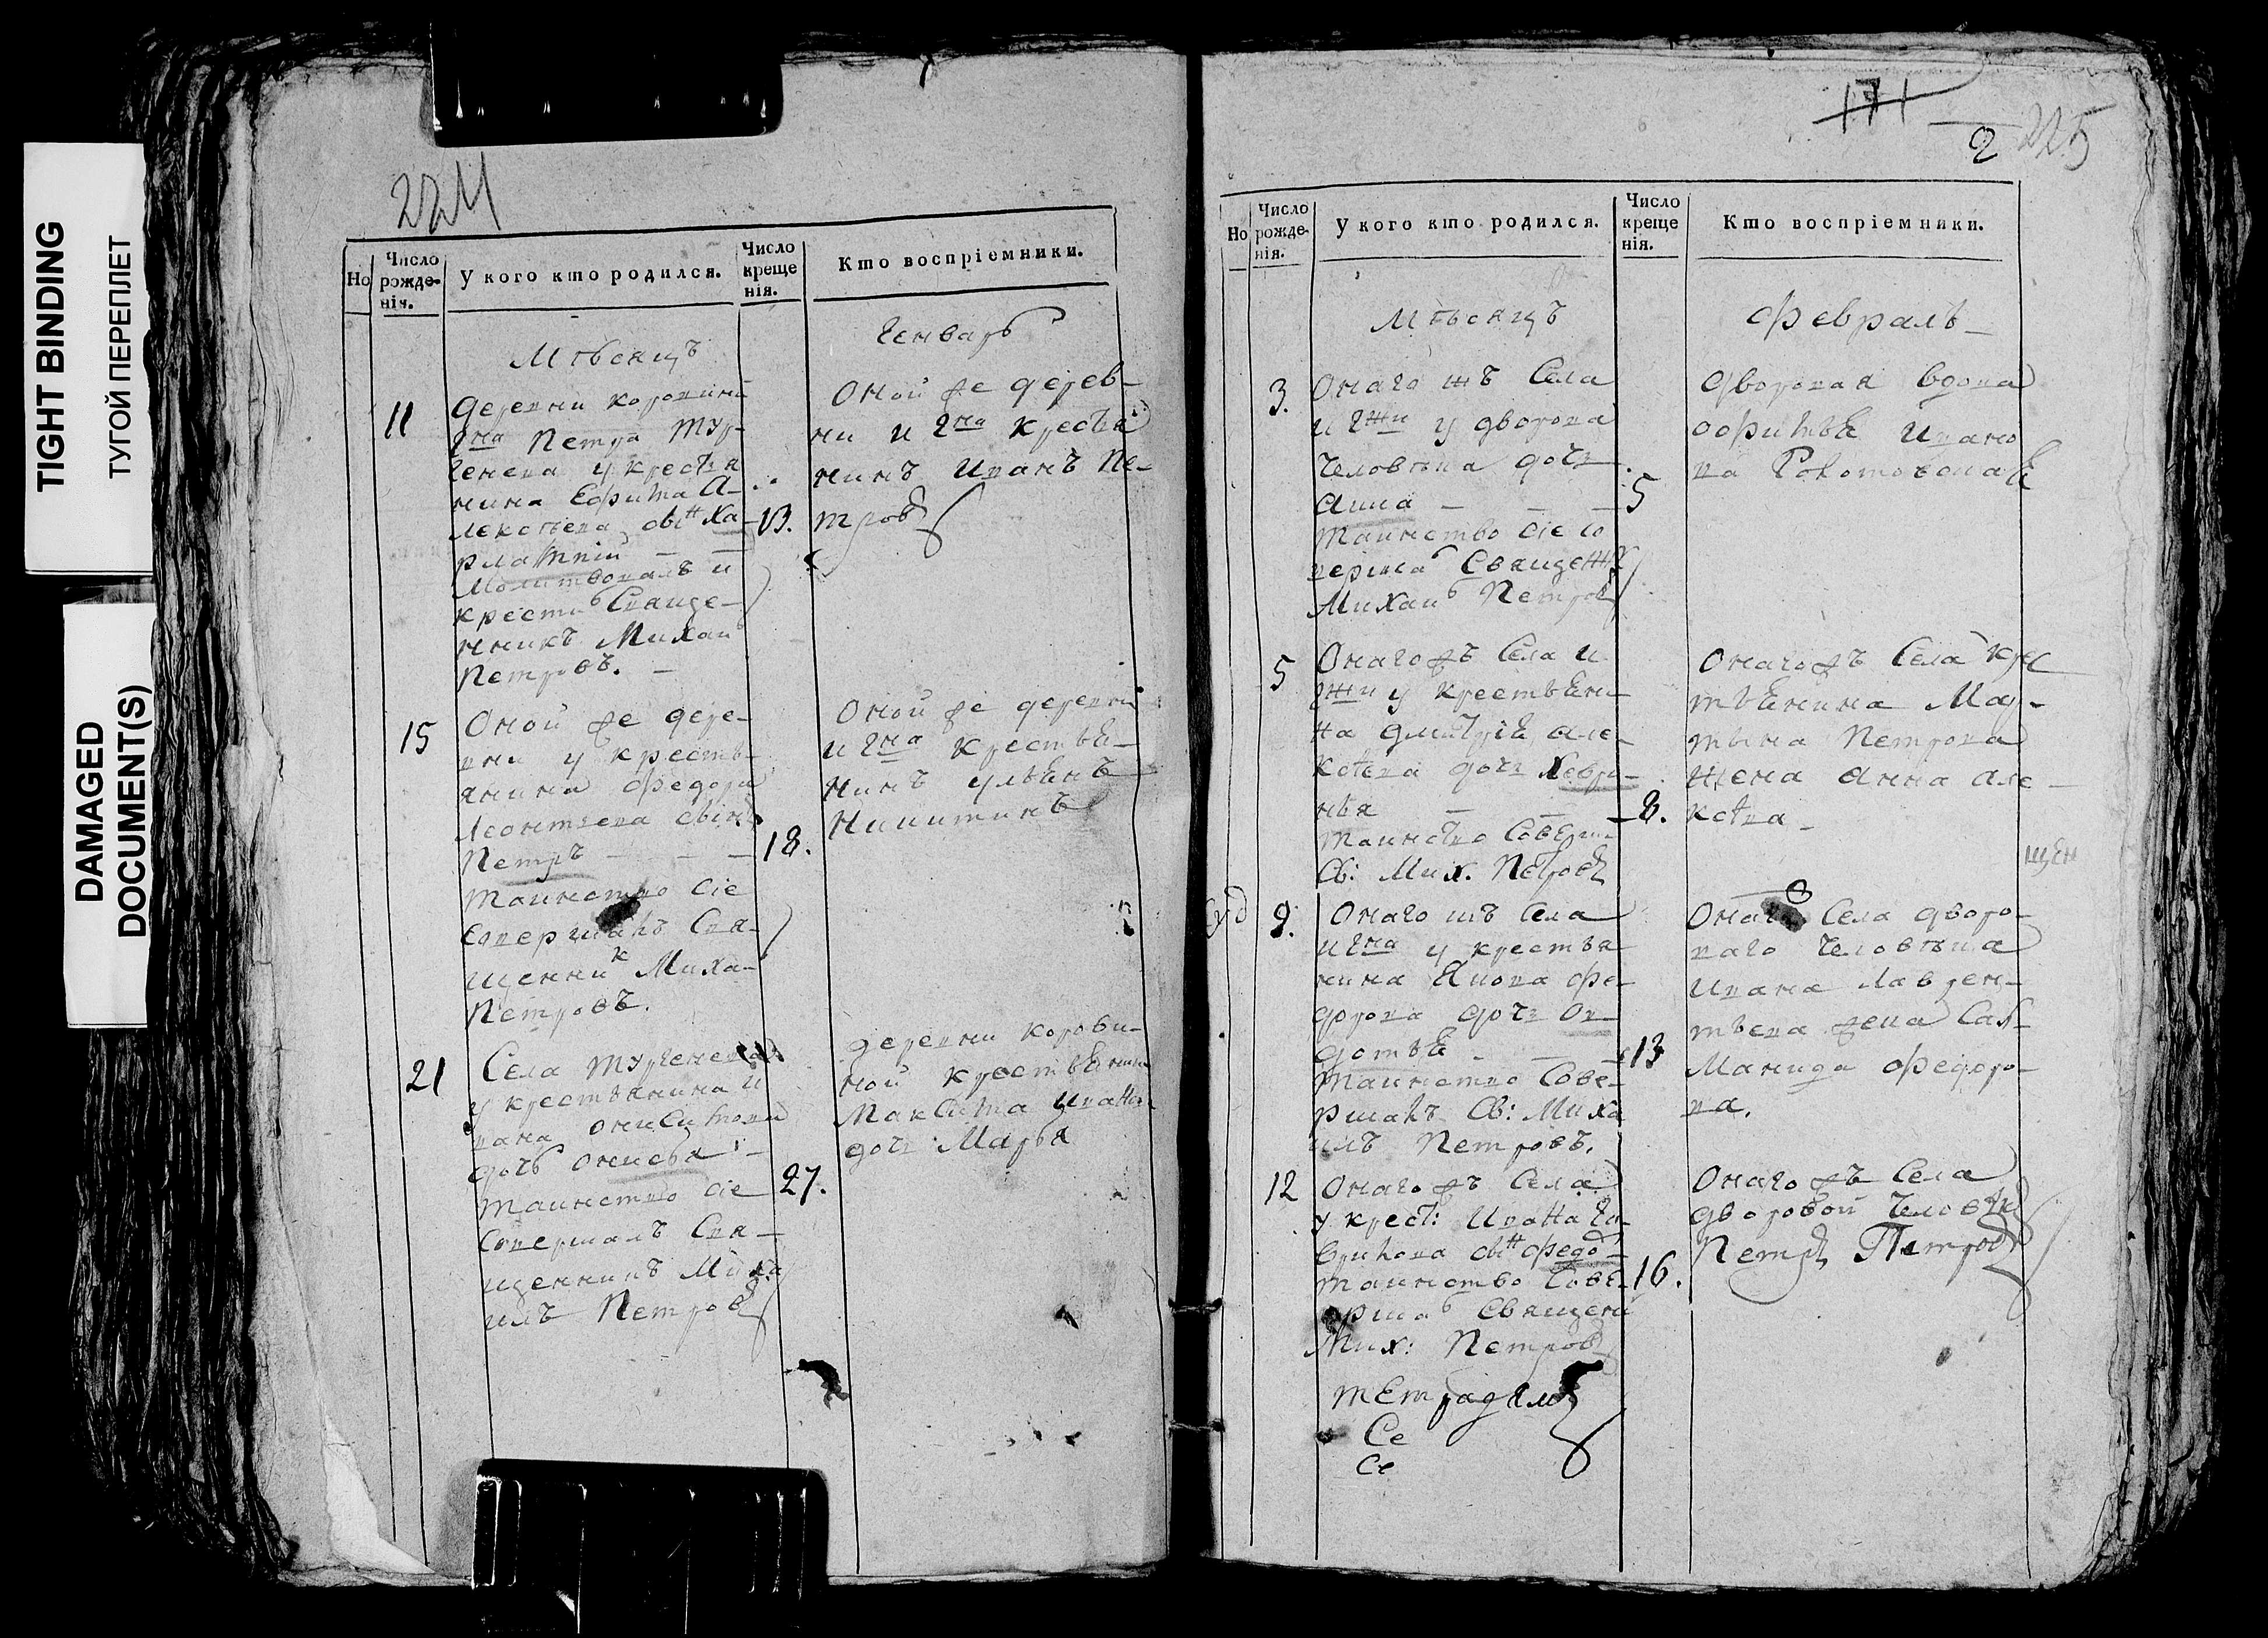 TIGHT BINDING
ТУГОЙ ПЕРЕПЛЕТ
DAMAGED
DOCUMENT(S)
224
Но
Число рожде-нія.
У кого кто родился.
Число креще нія.
Кто воспріемники.
Мѣсяцъ
Генварь
11
деревни
Гна Петра Тур-
генева у крестья
нина Ефима А-
лексѣева сынъ Ха-
рлампій
Молитвовалъ и
крестил Священ-
нникъ Михаил
Петровъ.
13.
Оной же дерев-
ни и Гна крестья
нинъ Иванъ Пе-
тровъ
15
Оной же дере-
вни у кресть-
янина Федора
Леонтьева сынъ
Петръ
Таинство сіе
совершалъ Свя-
щенник Миха-
Петровъ.
18.
Оной же деревни
и Гна крестья-
нинъ Ульянъ
Никитинъ
21
Села Тургенева
у крестьянина И
вана Онисимова
дочь Онисья
Таинство сіе
совершалъ Свя-
щенникъ Миха
илъ Петровъ
27.
деревни корови-
ной крестьянина
Максима Иванова
дочь Марья
171
2
225
Но
Число рожде-нія.
У кого кто родился.
Число креще нія.
Кто воспріемники.
Мѣсяцъ
Февраль
3.
Онаго жъ Села
и Гжи у дворова
человѣка дочь
Анна
Таинство сіе со
вершал Священн
Михаил Петровъ
5
Дворовая вдова
Ивано
ва
5
Онаго жъ Села и
Гжи у крестьяни-
на Дмитрія Але-
ксѣева дочь Февро-
нья
Таинство Соверш-
Св: Мих. Петровъ
8.
Онаго жъ Села крес
тьянина Мар-
тына Петрова
жена Анна Але-
ксѣва
9.
Онаго жъ Села
и Гна у крестья
нина Якова Фе-
дорова дочь Ов-
дотья
Таинство Сове-
ршалъ Св: Миха
илъ Петровъ.
13
Онаго Села дворо-
ваго человѣка
Ивана Лаврен-
тьева жена Сал-
Манида Федоро-
ва.
12
Онаго жъ Села
у крест: Ивана Га-
врилова сынъ Федо-
Таинство Сове-
ршал Священ
Мих: Петровъ
16.
Онаго жъ Села
дворовой человѣк
Петръ Петровъ
тетрадям
Се
Се